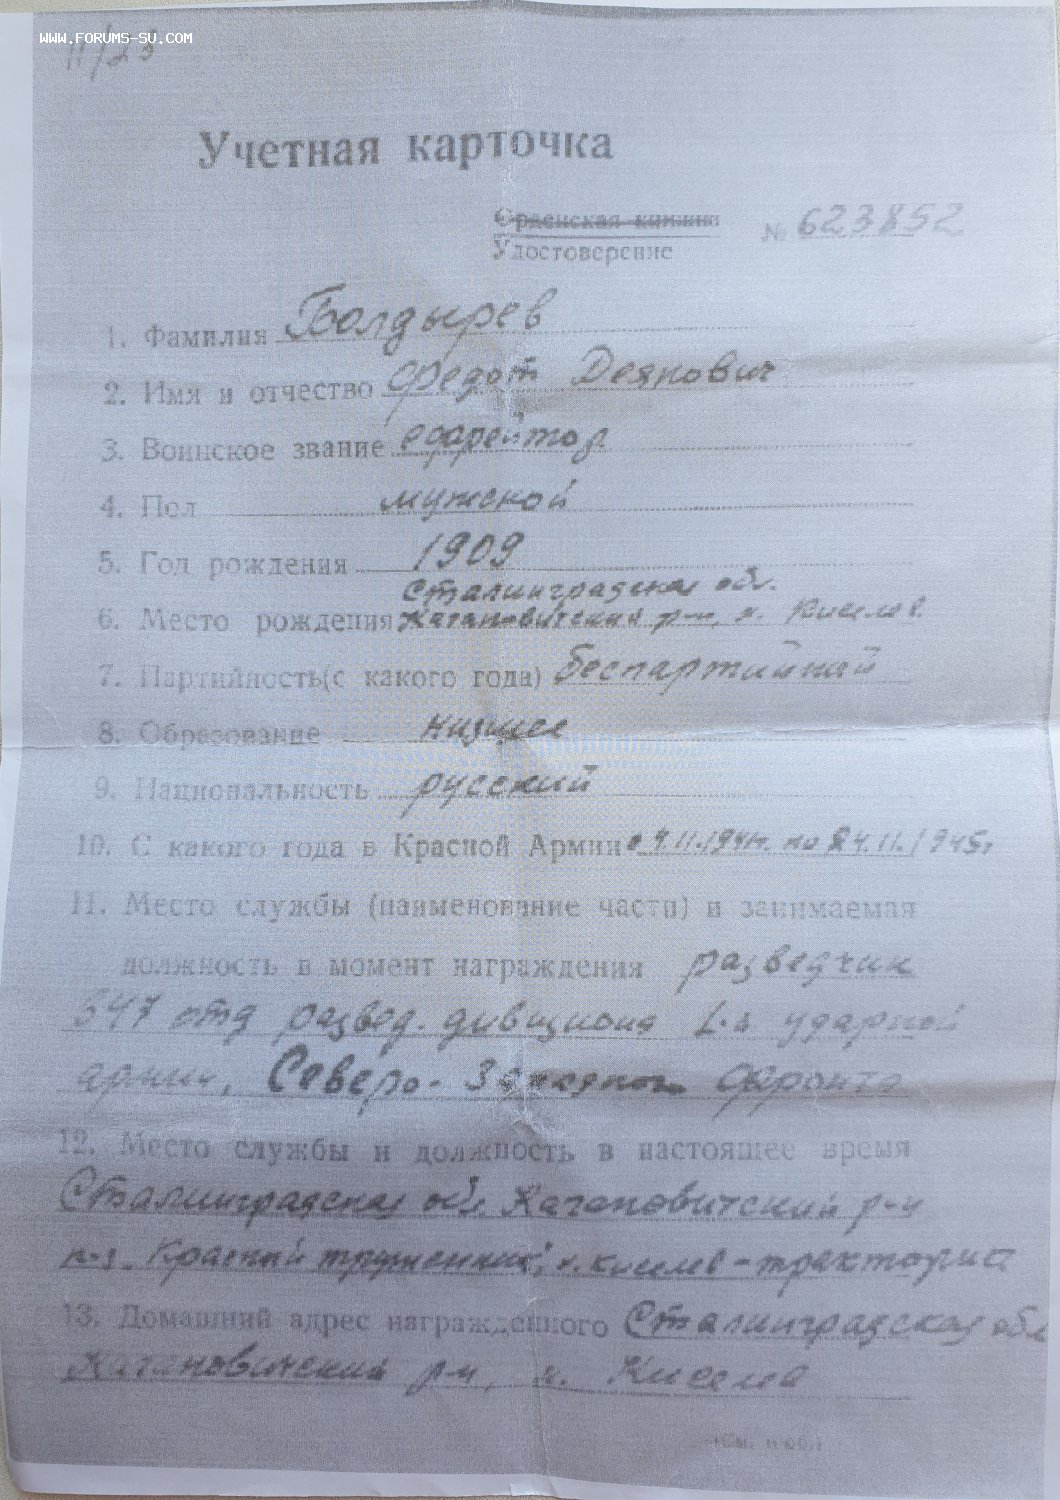 WWW.FORUMS-SU.COM
11/23
Учетная карточка
Орденская книжка
Удостоверение № 623852
1. Фамилия Болдырев
2. Имя и отчество Федот Деянович
3. Воинское звание ефрейтор
4. Пол мужской
5. Год рождения 1909
Сталинградская обл.
6. Место рождения Кагановичский р-н, х. Киселев
7. Партийность(с какого года) беспартийный
8. Образование низшее
9. Национальность русский
10. С какого года в Красной Армии с 9.11.1941г. по 24.11.1945г
11. Место службы (наименование части) и занимаемая
должность в момент награждения разведчик
547 отд развед. дивизиона 1-й ударной
армии, Северо-Западного фронта
12. Место службы и должность в настоящее время
Сталинградская обл. Кагановичский р-н
к-з. Красный труженник, х. Киселев - тракторист
13. Домашний адрес награжденного Сталинградская обл
Кагановичский р-н, х. Киселев
(См. н/об.)